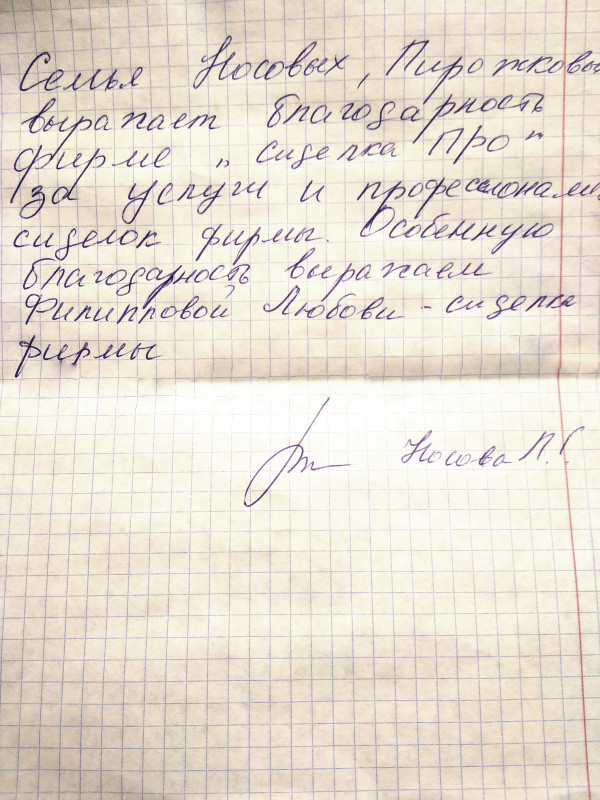 Семья Носовых, Пирожковы
выражает благодарность
фирме „ сиделка Про "
за услуги и професионали
сиделок фирмы. Особенную
благодарность выражаем
Филипповой Любови - сиделка
фирмы
Носова Л.Г.